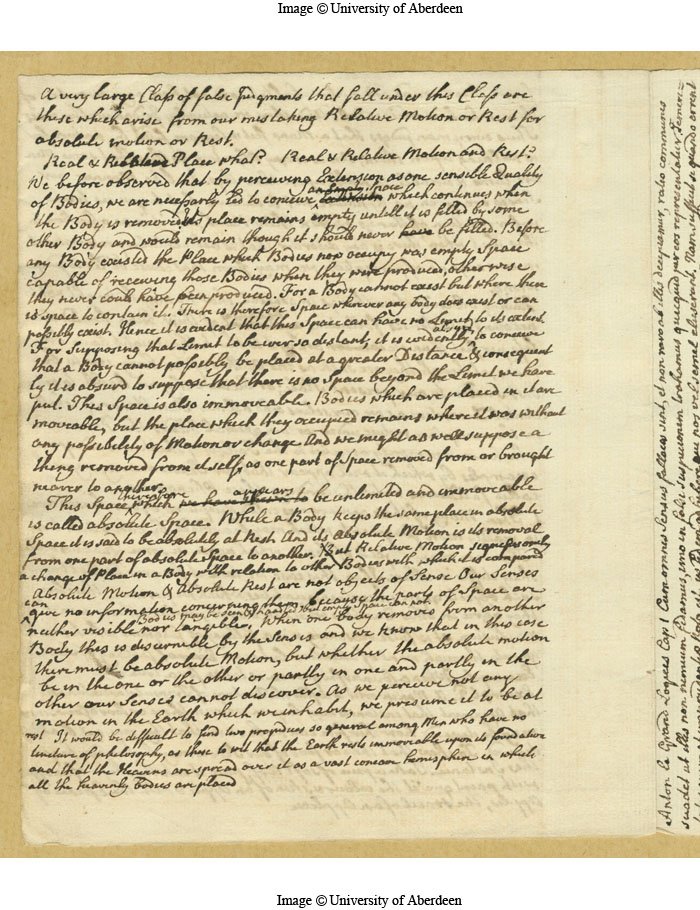 Image © University of Aberdeen
A very large Class of false Judgments that fall under this Class are
these which arise from our mistaking Relative Motion or Rest for
absolute motion or Rest.
Real & Relative Place what? Real & Relative Motion and Rest?
We before observed that by perceiving Extension as one sensible Quality
of Bodies, we are necessarly led to conceive an Empty space which continues when
the Body is removed its place remains empty untill it is filled by some
other Body and would remain though it should never have be filled. Before
any Body existed the Place which Bodies now occupy was empty Space
capable of receiving those Bodies when they were produced, otherwise
they never could have been produced. For a Body cannot exist but where there
is space to contain it. There is therefore Space wherever any body does exist or can
possibly exist. Hence it is evident that this Space can have no Limit to its extent.
For Supposing that Limit to be ever so distant, it is evidently absurd to conceive
that a Body cannot possibly be placed at a greater Distance & consequent
ly it is absurd to suppose that there is no Space beyond the Limit we have
put. This Space is also immoveable. Bodies which are placed in it are
moveable, but the place which they occupied remains where it was without
any possibility of Motion or change. And we might as well suppose a
thing removed from it self, as one part of Space removed from or brought
nearer to another.
This Space therefore which we have shewn to appears be unlimited and immoveable
is called absolute Space. While a Body keeps the same place in absolute
Space it is said to be absolutely at Rest. And its Absolute Motion is its removal
from one part of absolute Space to another. But Relative Motion signifies only
a change of Place in a Body with relation to other Bodies with which it is compared
Absolute Motion & Absolute Rest are not objects of Sense. Our Senses
can give no information concerning them because the parts of Space are
neither visible nor tangible. Bodies may be seen & handled but empty Space can not When one body removes from another
Body this is discernible by the Senses and we know that in this case
there must be absolute Motion, but whether the absolute motion
be in the one or the other or partly in one and partly in the
other our Senses cannot discover. As we perceive not any
motion in the Earth which we inhabit, we presume it to be at
rest It would be difficult to find two prejudices so general among Men who have no
tincture of philosophy, as these to wit that the Earth rests immovable upon its foundation
and that the Heavens are spread over it as a vast concave hemisphere in which
all the heavenly bodies are placed
Anton le Grand Logices Cap 1 Cum omnes Sensus fallaces sint, et non raro ab illis decipiamur, ratio communis
suadet ut illis non nimium fidamus, imo in falsi suspicionem trahamus quicquid per eos representatur. Temere
Image © University of Aberdeen